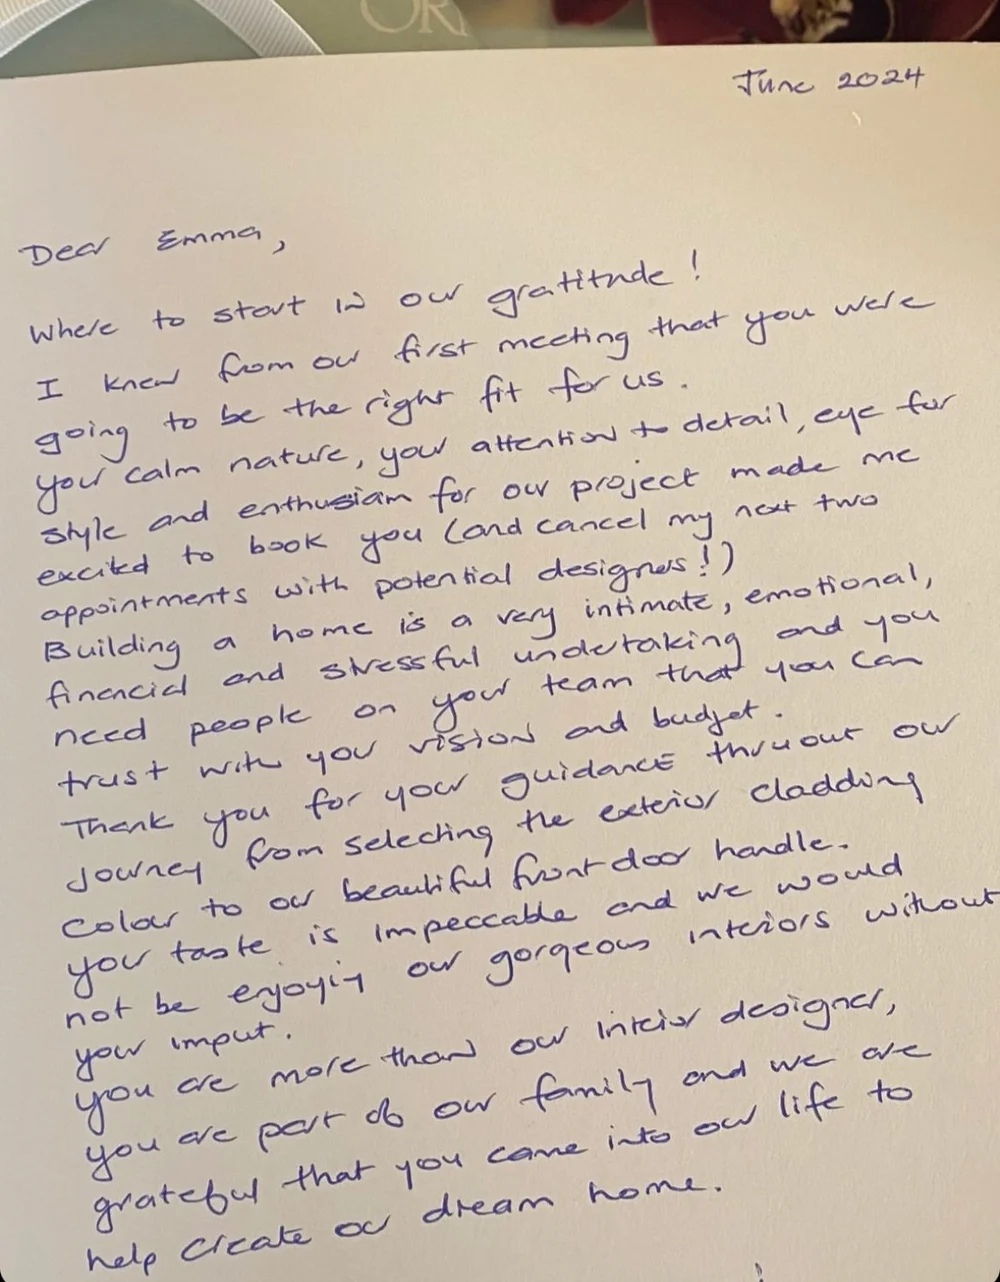 OR
June 2024
Dear Emma,
Where to start in our gratitude!
I knew from our first meeting that you were
going to be the right fit for us.
your calm nature, your attention to detail, eye for
style and enthusiam for our project made me
excited to book you (and cancel my next two
appointments with potential designers!)
Building a home is a very intimate, emotional,
financial and stressful undertaking and you
need people on your team that you can
trust with your vision and budget.
Thank you for your guidance thruout our
Journey from selecting the exterior cladding
colour to our beautiful front door handle.
your taste is impeccable and we would
not be enjoying our gorgeous interiors without
your imput.
you are more than our interior designer,
you are part of our family and we are
grateful that you came into our life to
help create our dream home.